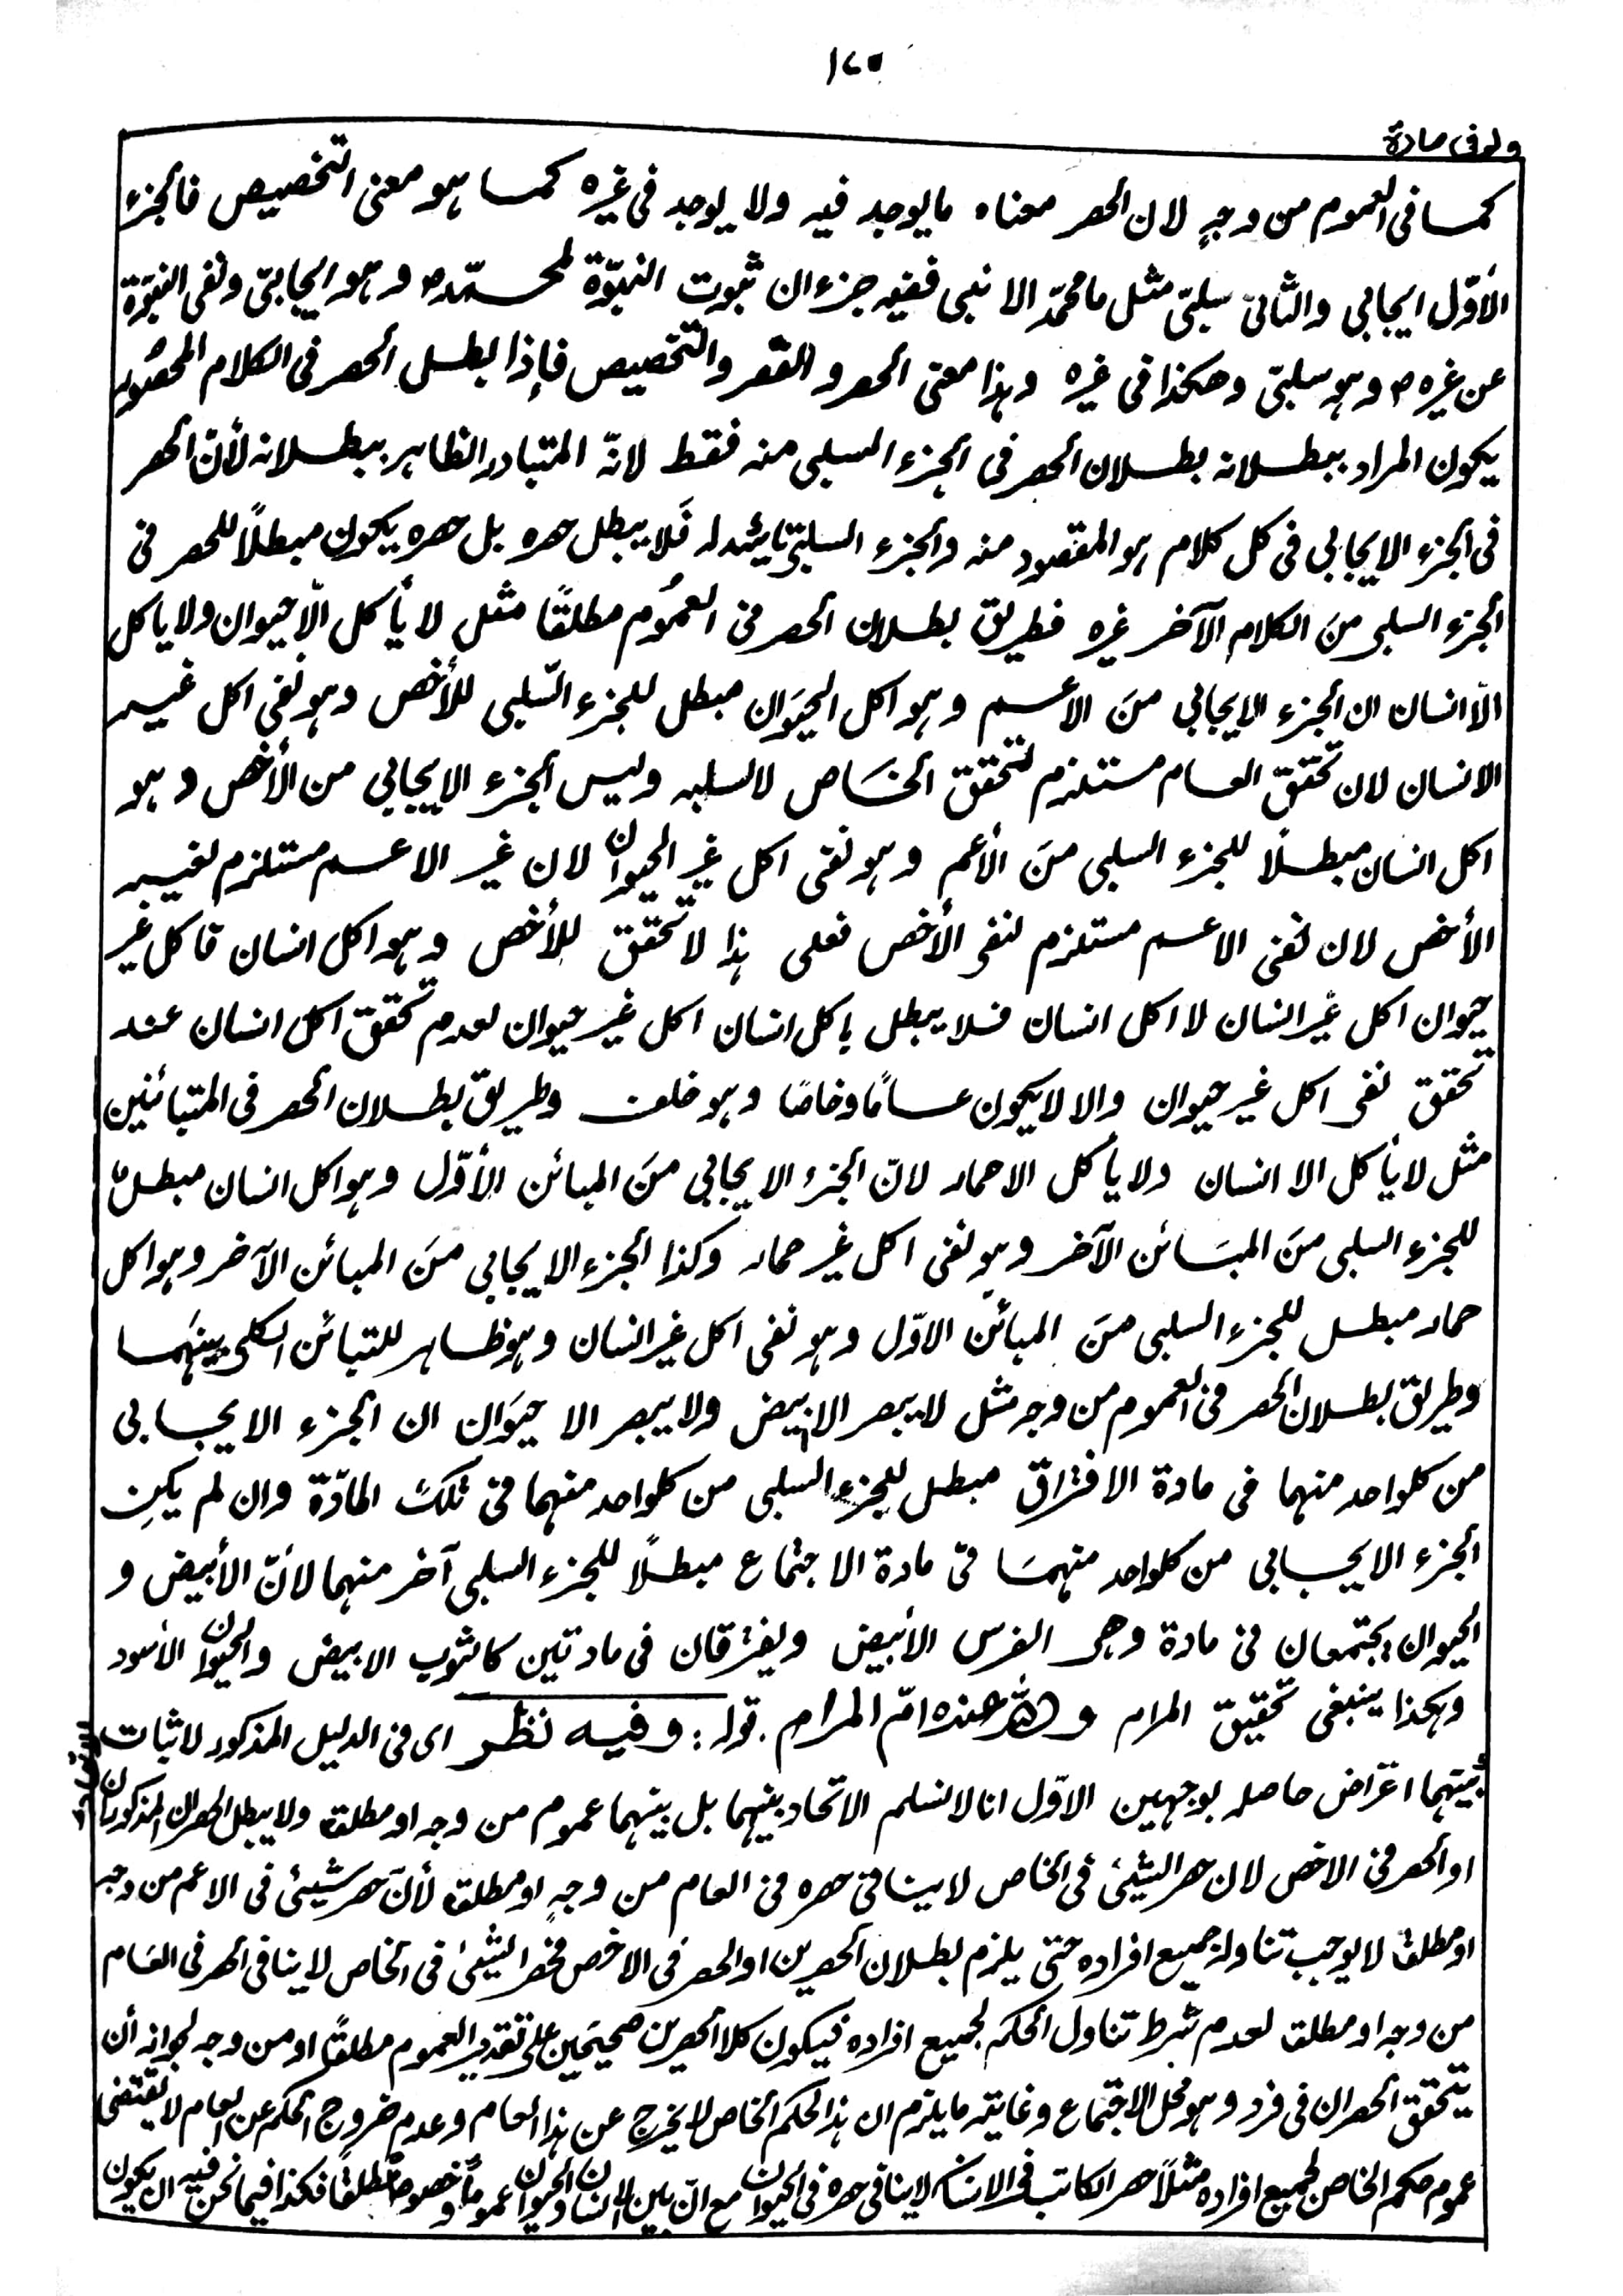 ١٧٥
ولو فى مادة
كما فى العموم من وجهٍ لان الحصر معناه ما يوجد فيه ولا يوجد فى غيره كما هو معنى التخصيص فالجزء
الأوّل ايجابي والثانى سلبىّ مثل ما محمّد الا نبى ففيه جزءان ثبوت النبوّة لمحمّدم وهو ايجابىّ ونفى النبوّة
عن غيره م وهو سلبىّ وهكذا فى غيره وهذا معنى الحصر والقصر والتخصيص فإذا بطل الحصر فى الكلام المحصُور
يكون المراد ببطلانه بطلان الحصر فى الجزء السلبى منه فقط لانّه المتبادر الظاهر ببطلانه لأنّ الحصر
فى الجزء الايجابي فى كل كلام هو المقصود منه والجزء السلبىّ تائيد له فَلا يبطل حصره بل حصره يكون مبطلاً للحصر فى
الجزء السلبى منَ الكلام الآخر غيره فطريق بطلان الحصر فى العمُوم مطلقًا مثل لا يأكل الّا حيوان ولا ياكل
الّا انسان ان الجزء الايجابي منَ الأعم وهو اكل الحيَوان مبطل للجزء السّلبى للأخص وهو نفى اكل غير
الانسان لان تحقق العام مستلزم لتحقق الخَاص لا لسلبه وليس الجزء الايجابي من الأخص وهو
اكل انسان مبطلًا للجزء السلبى منَ الأعم وهو نفى اكل غير الحيوان لان غير الاعم مستلزم لغير
الأخص لان نفى الاعم مستلزم لنفى الأخص فعلى هذا لا تحقق للأخص وهو اكل انسان فاكل غير
حيوان اكل غير انسان لا اكل انسان فلا يبطل باكل انسان اكل غير حيوان لعدم تحقق اكل انسان عند
تحقق نفى اكل غير حيوان والا لا يكون عامًا وخاصًا وهو خلف وطريق بطلان الحصر فى المتبائنين
مثل لا يأكل الا انسان ولا يأكل الا حمار لانّ الجزء الايجابي منَ المبائن الأوّل وهو اكل انسان مبطلٌ
للجزء السلبى منَ المبَائن الآخر وهو نفى اكل غير حمار وكذا الجزء الايجابي منَ المبائن الآخر وهو اكل
حمار مبطل للجزء السلبى منَ المبائن الاوّل وهو نفى اكل غير انسان وهو ظاهر للتبائن الكلى بينهما
وطريق بطلان الحصر فى العموم من وجه مثل لا يبصر الا ابيض ولا يبصر الا حيَوان ان الجزء الايجابى
من كلواحد منهما فى مادة الافتراق مبطل للجزء السلبى من كلواحد منهما فى تلكَ المادّة وان لم يكن
الجزء الايجابى من كلواحد منهمَا فى مادة الاجتماع مبطلًا للجزء السلبى آخر منهما لأنّ الأبيض و
الحيوان يجتمعان فى مادة وهى الفرس الأبيض ويفترقان فى مادتين كالثوب الابيض والحيوان الأسود
وهكذا ينبغى تحقيق المرام والله عنده امّ المرام. قوله: وفيه نظر اى فى الدليل المذكور لاثبات
بينهما اعتراض حاصله بوجهين الاوّل انا لا نسلم الاتحاد بينهما بل بينهما عموم من وجه او مطلق ولا يبطل الحصران المذكوران
او الحصر فى الاخص لان حصر الشيئ فى الخاص لا ينافى حصره فى العام من وجهٍ او مطلق لأنّ حصر شيئ فى الاعم من وجه
او مطلق لا يوجب تناوله جميع افراده حتى يلزم بطلان الحصرين او الحصر فى الاخص فحصر الشيئ فى الخاص لا ينافى الحصر فى العَام
من وجه او مطلق لعدم شرط تناول الحكم لجميع افراده فيكون كلا الحصرين صحيحين على تقدير العموم مطلقًا او من وجه لجوازه أن
يتحقق الحصران فى فرد وهو محل الاجتماع وغايته ما يلزم ان هذا الحكم الخاص لا يخرج عن هذا العام وعدم خروج الحكم عن العام لا يقتضى
عموم حكم الخاص لجميع افراده مثلاً حصر الكاتب فى الانسان لا ينافى حصره فى الحيوان مع انّ بين الانسان والحيوان عموماً وخصوصاً مطلقًا فكذا فيما نحن فيه ان يكون